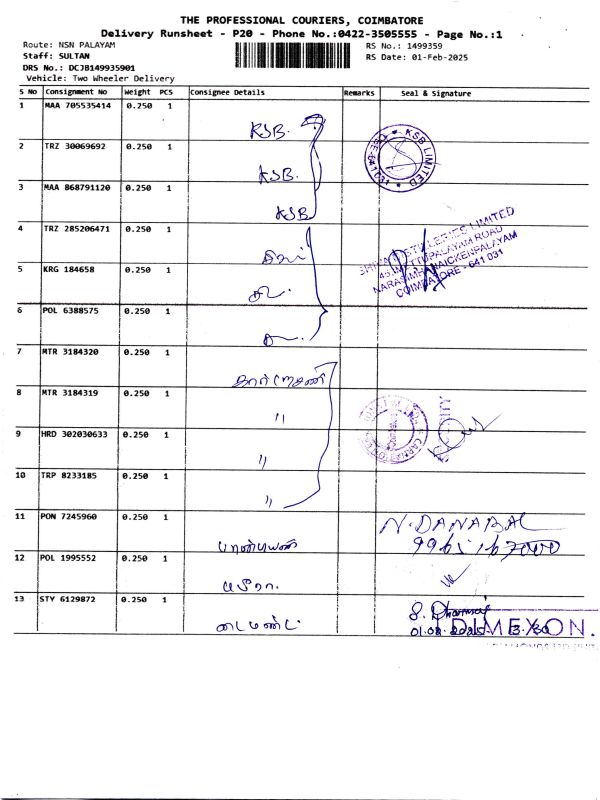 THE PROFESSIONAL COURIERS, COIMBATORE
Delivery Runsheet - P20 - Phone No.:0422-3505555 - Page No.:1
Route: NSN PALAYAM
RS No.: 1499359
Staff: SULTAN
RS Date: 01-Feb-2025
DRS No.: DCJB149935901
Vehicle: Two Wheeler Delivery
S No Consignment No Weight PCS Consignee Details Remarks Seal & Signature
1 MAA 705535414 0.250 1
KSB.
2 TRZ 30069692 0.250 1
KSB.
KSB LIMITED
3 MAA 868791120 0.250 1
KSB
4 TRZ 285206471 0.250 1
LIMITED
NARASIMHANAICKENPALAYAM
COIMBATORE - 641 031
5 KRG 184658 0.250 1
6 POL 6388575 0.250 1
7 MTR 3184320 0.250 1
8 MTR 3184319 0.250 1
"
9 HRD 302030633 0.250 1
"
10 TRP 8233185 0.250 1
"
11 PON 7245960 0.250 1
N. DANABAL
பாண்டியன்
12 POL 1995552 0.250 1
13 STY 6129872 0.250 1
டைமண்ட்
DIMEXON